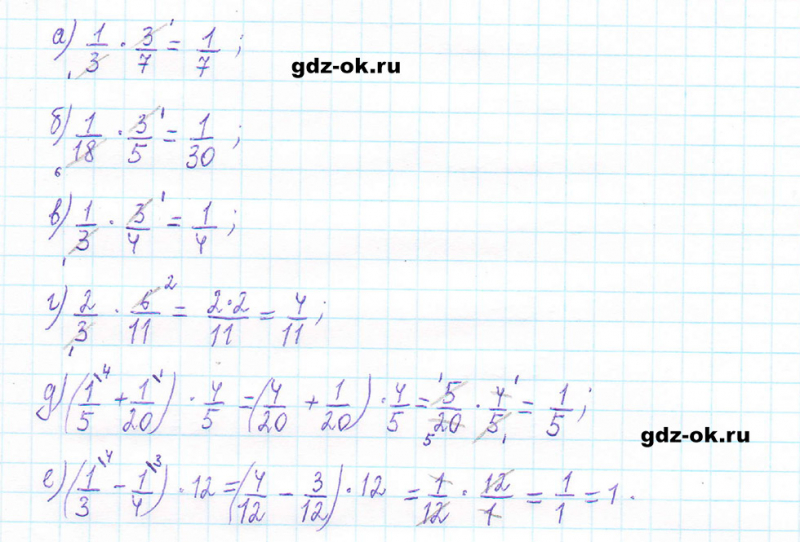 а) 1/3 · 3/7 = 1/7 ;
gdz-ok.ru
б) 1/18 · 3/5 = 1/30 ;
в) 1/3 · 3/4 = 1/4 ;
г) 2/3 · 6/11 = 2·2/11 = 4/11 ;
д) (1/5 + 1/20) · 4/5 = (4/20 + 1/20) · 4/5 = 5/20 · 4/5 = 1/5 ;
gdz-ok.ru
е) (1/3 - 1/4) · 12 = (4/12 - 3/12) · 12 = 1/12 · 12/1 = 1/1 = 1 .